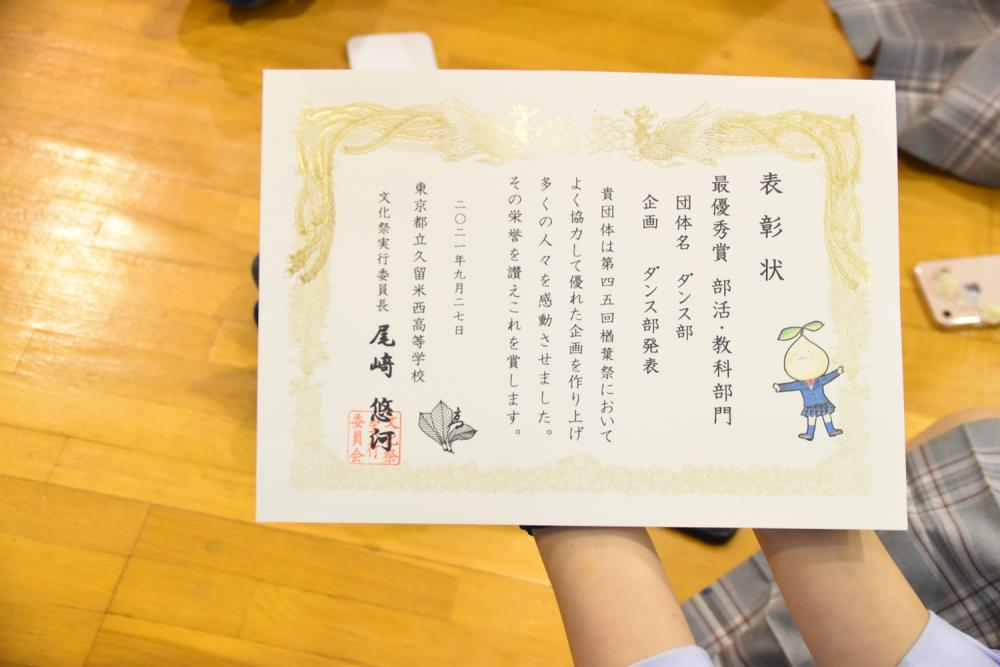 表彰状
最優秀賞 部活・教科部門
団体名 ダンス部
企画 ダンス部発表
貴団体は第四五回楢葉祭において
よく協力して優れた企画を作り上げ
多くの人々を感動させました。
その栄誉を讃えこれを賞します。
二〇二一年九月二七日
東京都立久留米西高等学校
文化祭実行委員長 尾﨑 悠河
文化祭
実行
委員会